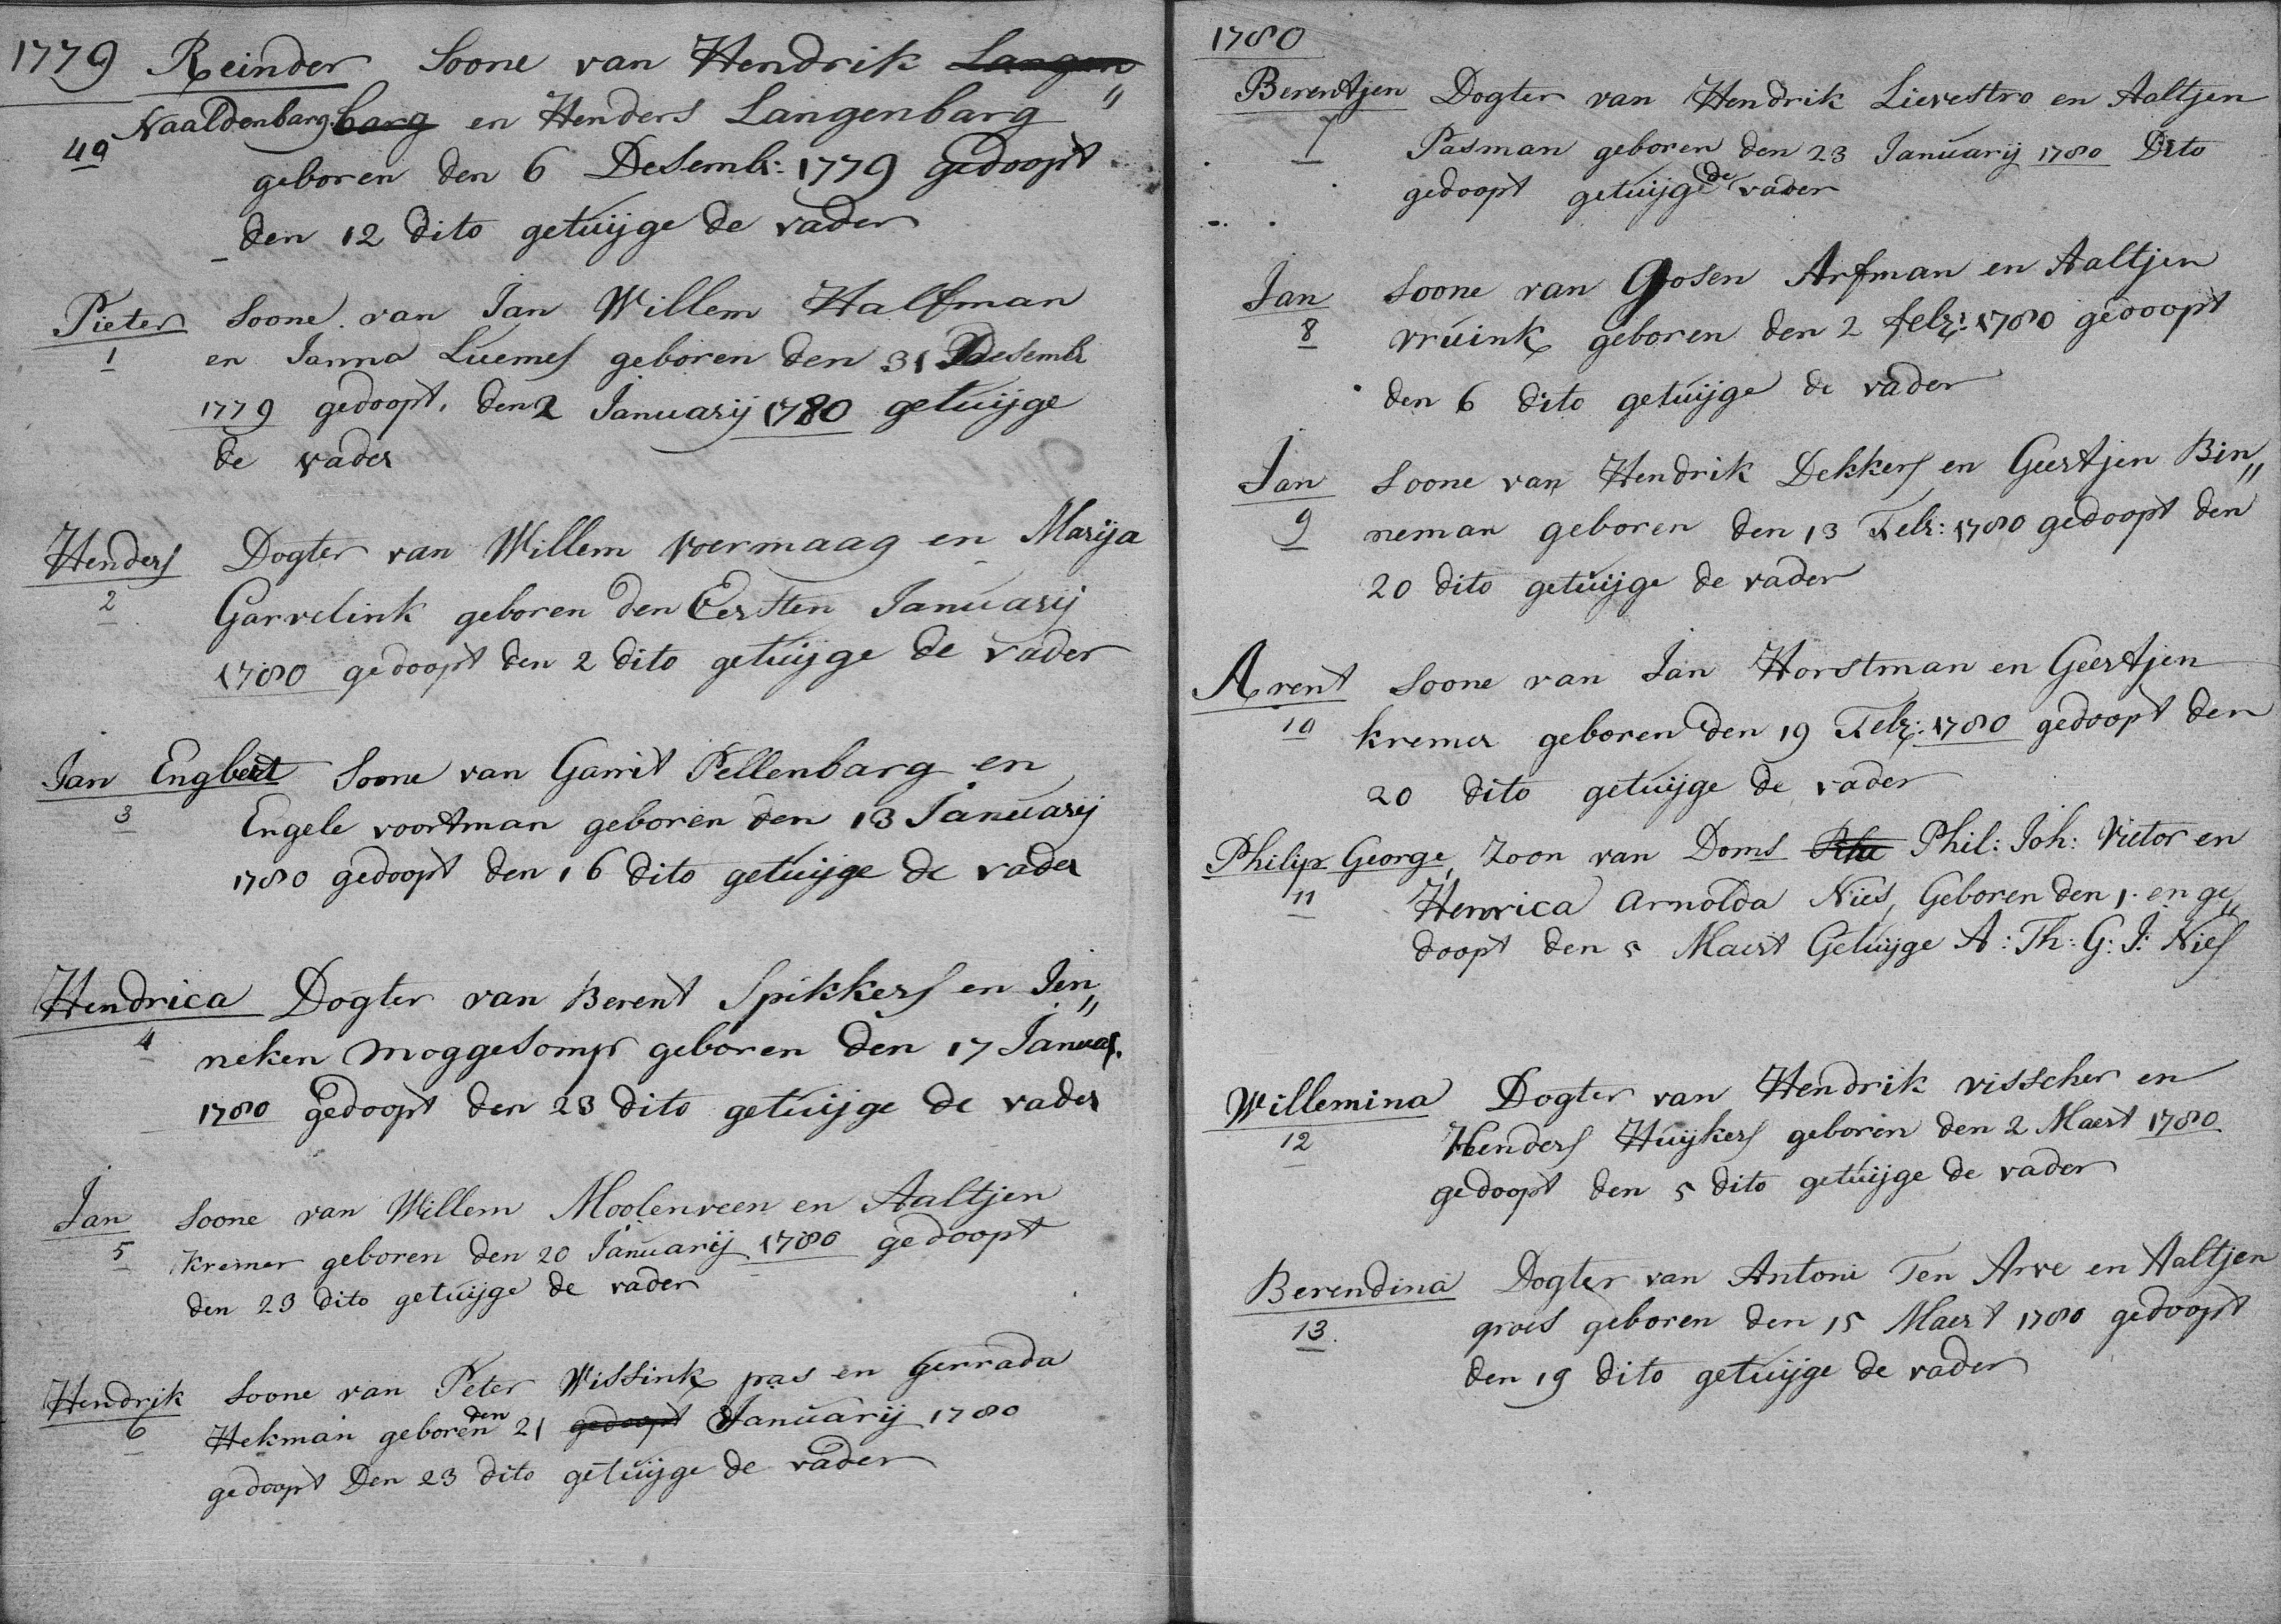 1779 Reinder Soone van Hendrik Langen„
Naaldenbarg barg en Henders Langenbarg
49
geboren den 6 Desembr: 1779 gedoopt
den 12 dito getuijge de vader
Pieter Soone van Jan Willem Halfman
1 en Janna Luemes geboren den 31 Desembr
1779 gedoopt, den 2 Januarij 1780 getuijge
de vader
Henders Dogter van Willem Voermaag en Marija
2 Garvelink geboren den Eersten Januarij
1780 gedoopt den 2 dito getuijge de vader
Jan Engbert Soone van Garrit Pellenbarg en
3 Engele voortman geboren den 13 Januarij
1780 gedoopt den 16 dito getuijge de vader
Hendrica Dogter van Berent Spikkers en Jen„
4 neken moggesomp geboren den 17 Januar.
1780 gedoopt den 23 dito getuijge de vader
Jan Soone van Willem Moolenveen en Aaltjen
5 Kremer geboren den 20 Januarij 1780 gedoopt
den 23 dito getuijge de vader
Hendrik Soone van Peter Wissink pas en Gerrada
6 Hekman geboren den 21 gedoopt Januarij 1780
gedoopt Den 23 dito getuijge de vader
1780
Berentjen Dogter van Hendrik Lievestro en Aaltjen
7 Pasman geboren den 23 Januarij 1780 Dito
gedoopt getuijge de vader
Jan Soone van Gosen Arfman en Aaltjen
8 vruink geboren den 2 febr: 1780 gedoopt
den 6 dito getuijge de vader
Jan Soone van Hendrik Dekkers en Geertjen Bin„
9 neman geboren den 13 Febr: 1780 gedoopt den
20 dito getuijge de vader
Arent Soone van Jan Horstman en Geertjen
10 kremer geboren den 19 Febr: 1780 gedoopt den
20 dito getuijge de vader
Philip George, Zoon van Doms Phil: Joh: Vietor en
11 Henrica Arnolda Nies, Geboren den 1. en ge„
doopt den 5 Maert Getuijge A: Th: G: J: Nies
Willemina Dogter van Hendrik visscher en
12 Henders Huijkers geboren den 2 Maert 1780
gedoopt den 5 dito getuijge de vader
Berendina Dogter van Antoni Ten Arve en Aaltjen
13. groes geboren den 15 Maert 1780 gedoopt
den 19 dito getuijge de vader